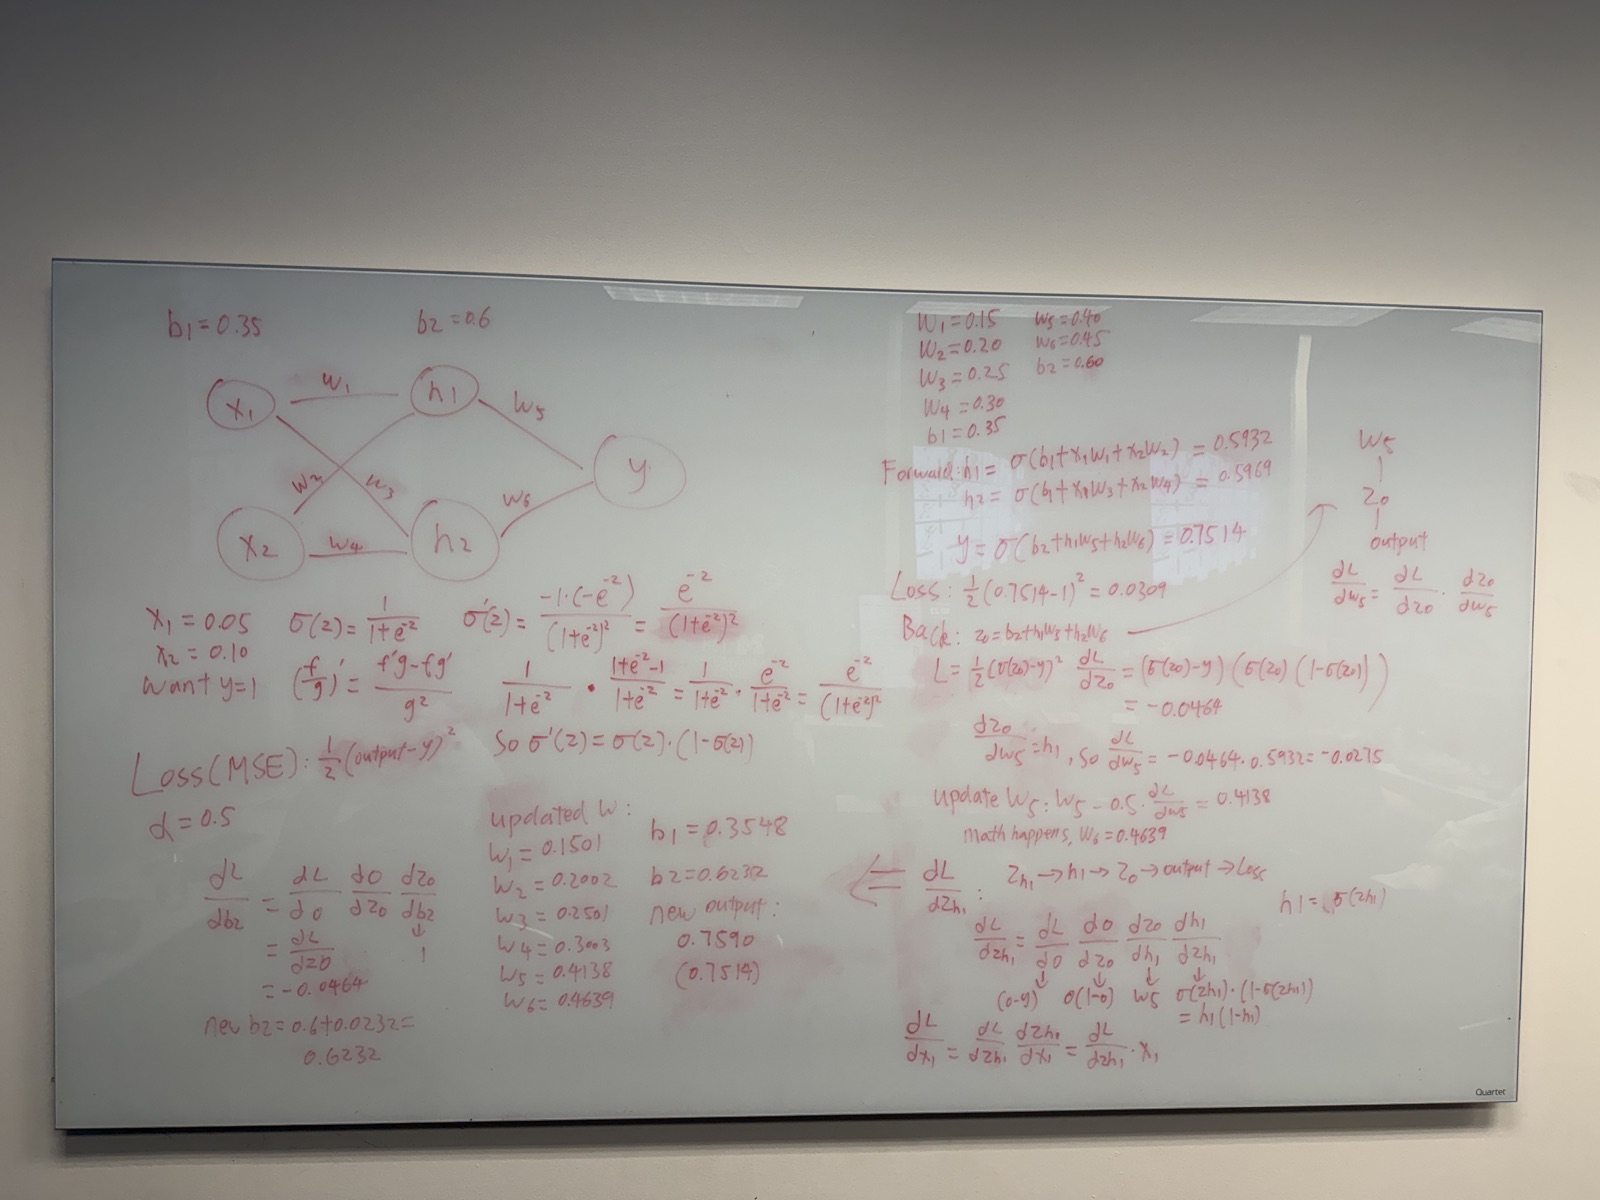 b1=0.35
b2=0.6
x1
w1
h1
w5
w2
w3
y
x2
w4
h2
w6
x1 = 0.05
x2 = 0.10
want y=1
σ(z) = 1/(1+e^-z)
σ'(z) = -1·(-e^-z)/(1+e^-z)^2 = e^-z/(1+e^-z)^2
(f/g)' = (f'g-fg')/g^2
1/(1+e^-z) · (1+e^-z-1)/(1+e^-z) = 1/(1+e^-z) · e^-z/(1+e^-z) = e^-z/(1+e^-z)^2
So σ'(z) = σ(z)·(1-σ(z))
Loss(MSE): 1/2(output-y)^2
α = 0.5
dL/db2 = dL/do do/dzo dzo/db2
↓
1
= dL/dzo
= -0.0464
new b2 = 0.6+0.0232 =
0.6232
updated W:
W1 = 0.1501
W2 = 0.2002
W3 = 0.2501
W4 = 0.3003
W5 = 0.4138
W6 = 0.4639
b1 = 0.3548
b2 = 0.6232
new output:
0.7590
(0.7514)
W1=0.15
W2=0.20
W3=0.25
W4=0.30
b1=0.35
W5=0.40
W6=0.45
b2=0.60
Forward: h1 = σ(b1+x1w1+x2w2) = 0.5932
h2 = σ(b1+x1w3+x2w4) = 0.5969
y = σ(b2+h1w5+h2w6) = 0.7514
Loss: 1/2(0.7514-1)^2 = 0.0309
Back: zo=b2+h1w5+h2w6
W5
zo
output
dL/dw5 = dL/dzo · dzo/dw5
L = 1/2(σ(zo)-y)^2 dL/dzo = (σ(zo)-y)(σ(zo)(1-σ(zo)))
= -0.0464
dzo/dw5 = h1, so dL/dw5 = -0.0464·0.5932 = -0.0275
update W5: W5 - 0.5·dL/dw5 = 0.4138
math happens, W6 = 0.4639
⇐ dL/dzh1: zh1→h1→zo→output→Loss
h1 = σ(zh1)
dL/dzh1 = dL/do do/dzo dzo/dh1 dh1/dzh1
↓ ↓ ↓ ↓
(o-y) o(1-o) w5 σ(zh1)·(1-σ(zh1))
= h1(1-h1)
dL/dx1 = dL/dzh1 dzh1/dx1 = dL/dzh1 · x1
Quartet